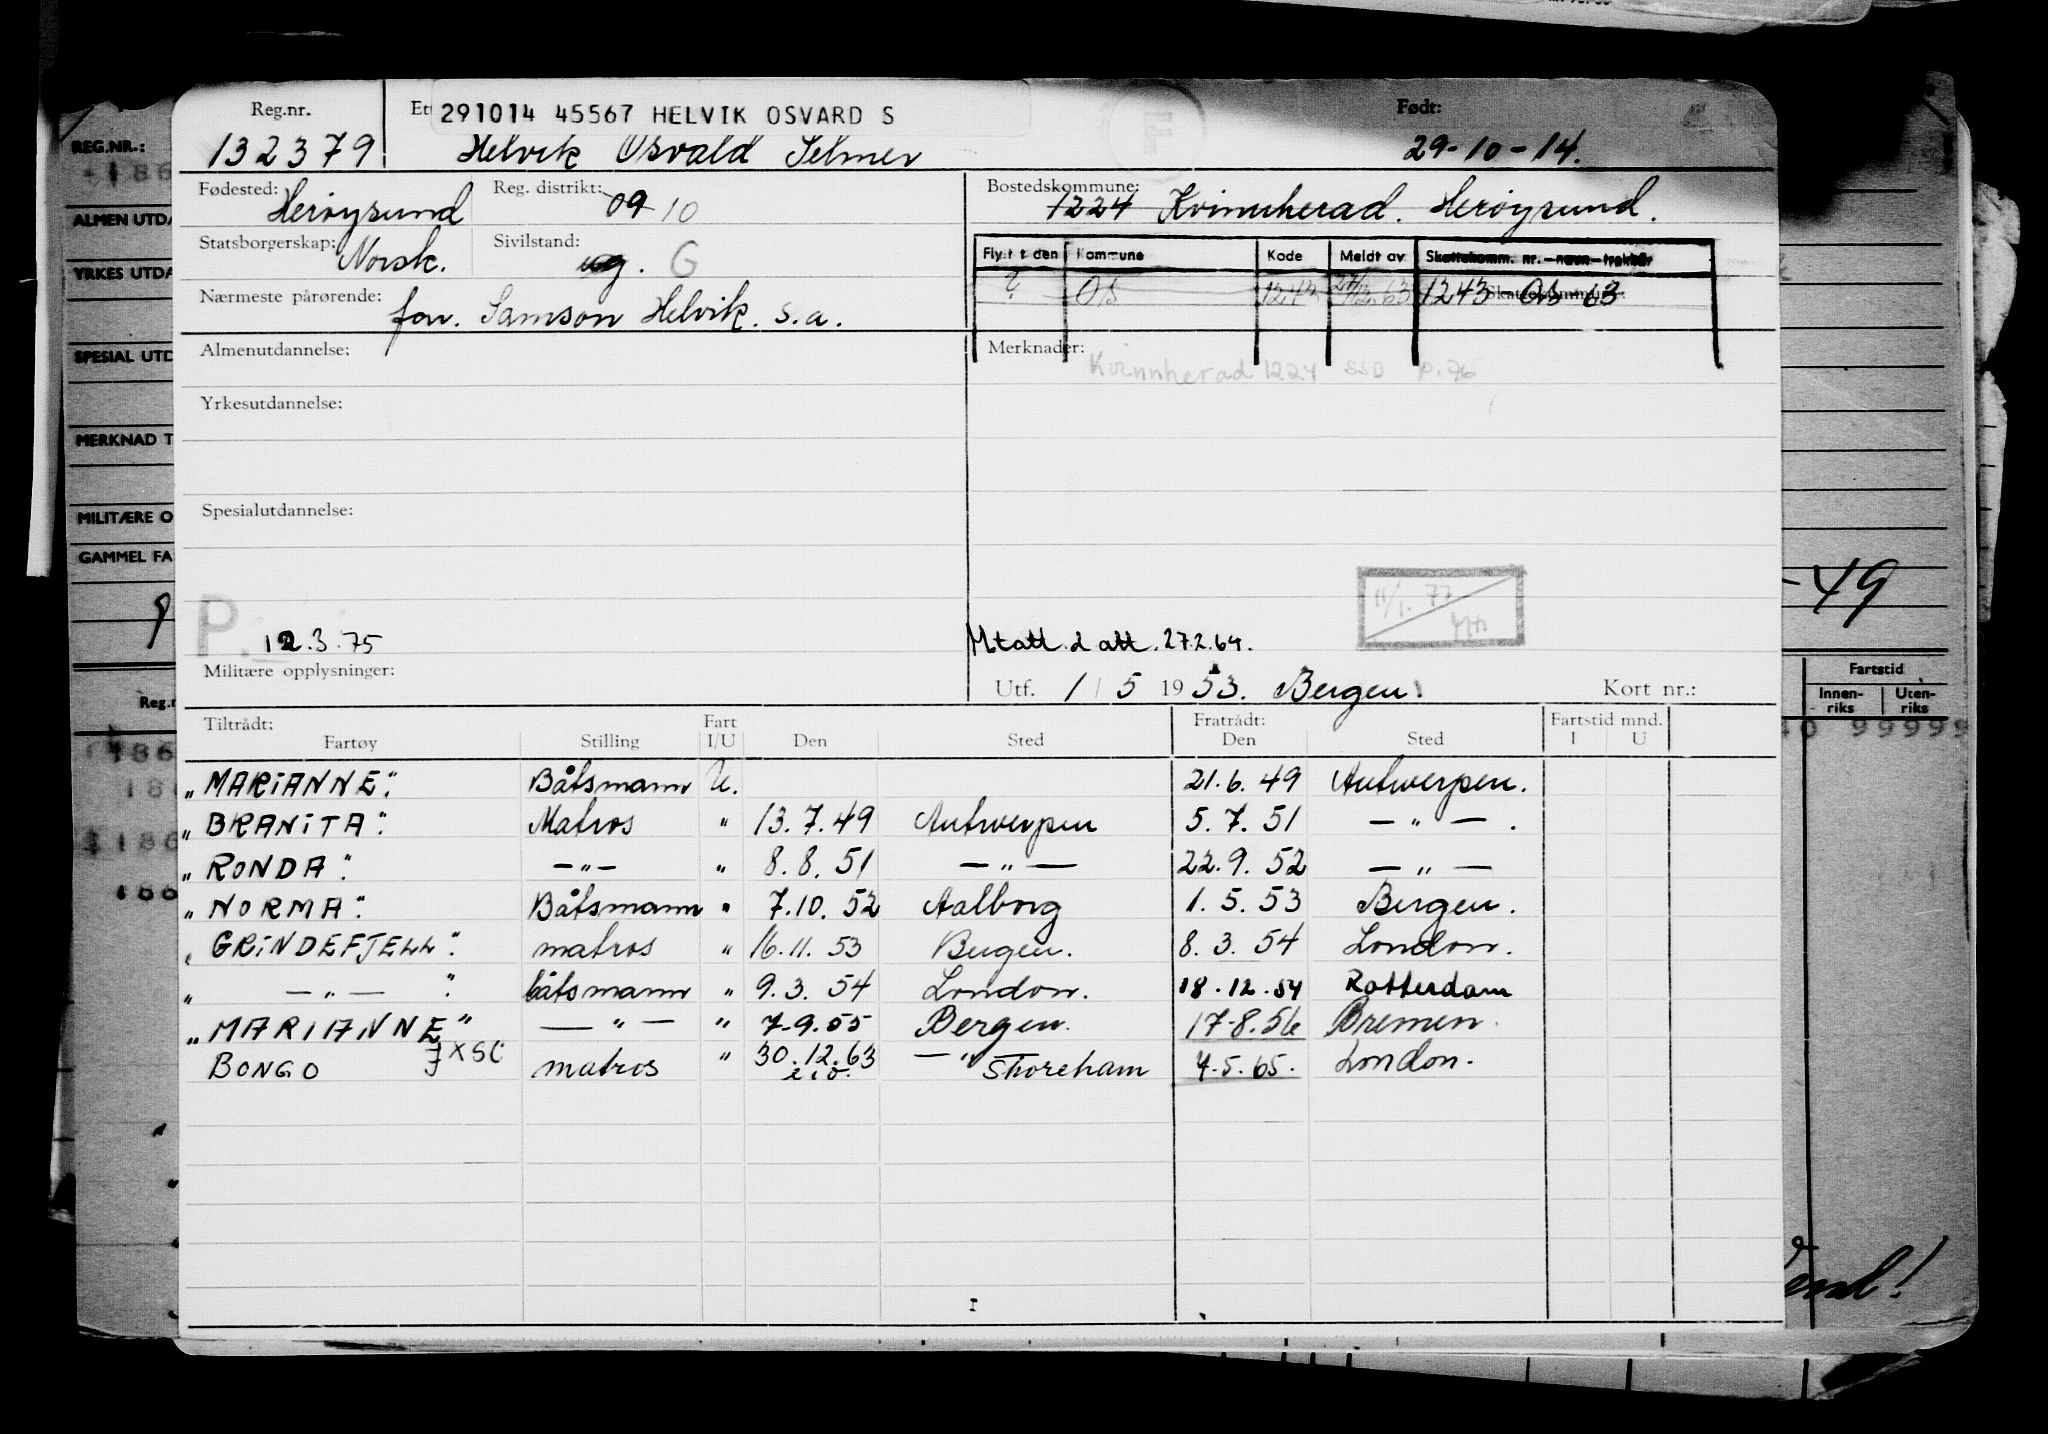 Reg.nr. 291014 45567 HELVIK OSVARD S Født:
132379 Helvik Osvald Selmer 29-10-14.
Fødested: Herøysund Reg. distrikt: 09 10 Bostedskommune: 1224 Kvinnherad. Herøysund.
Statsborgerskap: Norsk. Sivilstand: ug. G
Flyttt den Kommune Kode Meldt av Skattekomm. nr.-navn-trekkår
? Os 1243 27/12.63 1243 Os 63
Nærmeste pårørende: far. Samson Helvik. s.a.
Almenutdannelse: Merknader:
Kvinnherad 1224 SSB p.76
Yrkesutdannelse:
Spesialutdannelse:
11/1. 77
P. 12.3.75 Mtatt. d att. 27.2.64.
Militære opplysninger: Utf. 1/5 1953. Bergen. Kort nr.:
Tiltrådt: Fart Fratrådt: Fartstid mnd.
Fartøy Stilling I/U Den Sted Den Sted I U
"MARIANNE". Båtsmann U. 21.6.49 Antwerpen.
"BRANITA". Matros " 13.7.49 Antwerpen 5.7.51 — " — .
"RONDA". — " — " 8.8.51 — " — 22.9.52 — " —
"NORMA". Båtsmann " 7.10.52 Aalborg 1.5.53 Bergen.
"GRINDEFJELL". matros " 16.11.53 Bergen. 8.3.54 London.
" — " — ". båtsmann " 9.3.54 London. 18.12.54 Rotterdam
"MARIANNE" — " — " 7-9.55 Bergen. 17-8.56 Bremen.
BONGO JXSC matros " 30.12.63 — " Shoreham 4.5.65. London.
REG.NR.:
ALMEN UTDA
YRKES UTDA
SPESIAL UTD
MERKNAD T
MILITÆRE O
GAMMEL FA
-49
Fartstid
Innen-riks Uten-riks
99999